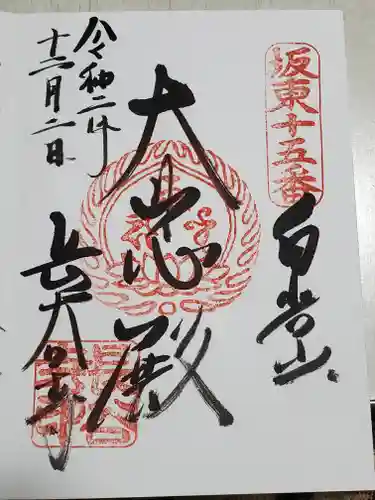 坂東十五番
白岩山
大悲殿
令和二年
十二月二日
長谷寺